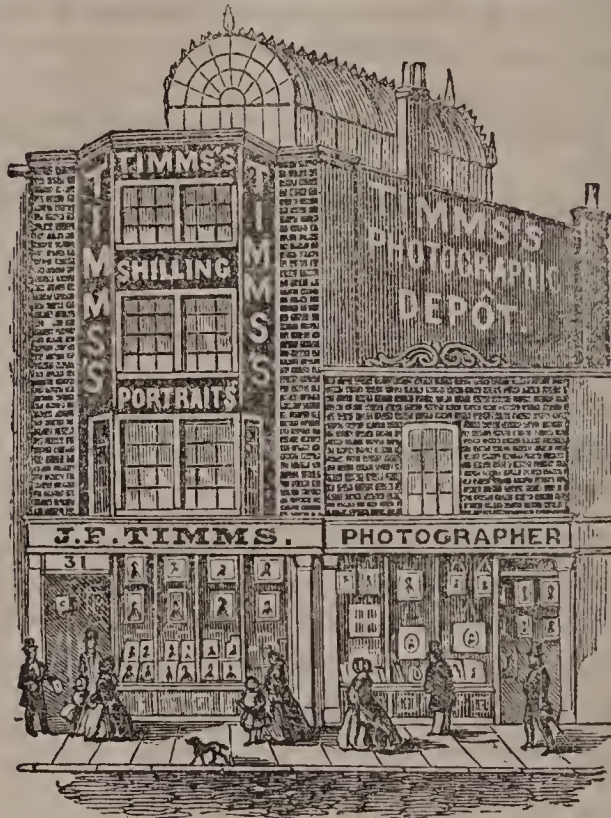 TIMMS'S
SHILLING
PORTRAITS
TIMMS'S
TIMMS'S
TIMMS'S
PHOTOGRAPHIC
DEPÔT.
J.F.TIMMS.
PHOTOGRAPHER
31